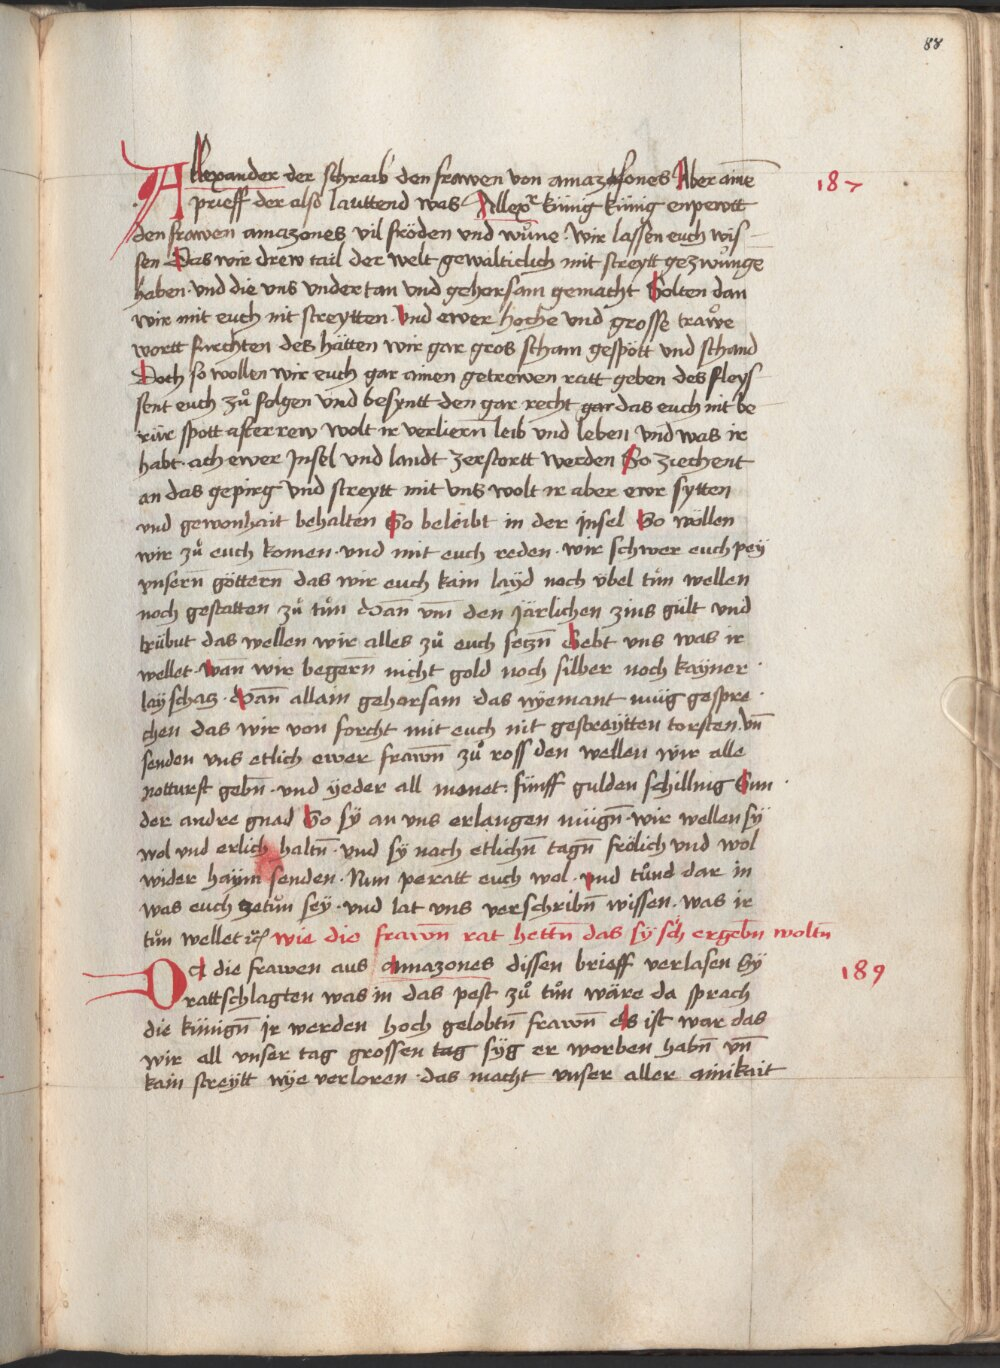 88
Allexander der schraib den frawen von amazosones Aber aine̅
187
prieff der also lauttend was Allex͛ künig künig enpewtt
den frawen amazones vil fröden vnd wůne · wir lassen euch wis
sen Das wir drew tail der welt gewalticlich mit streytt gezwůnge
haben · vnd die vns vnder tan vnd gehorsam gemacht Solten dan
wir mit euch nit streytten · vnd ewer hoche vnd grosse trawͦe
wortt furchten des hätten wir gar gros scham gespött vnd schand
Doch so wollen wir euch gar ainen getrewen ratt geben des fleys
sent euch zuͦ folgen vnd besyntt den gar recht gar das euch nit be
rür spott after rew wolt ir verliern leib vnd leben vnd was ir
habt · ach ewer Jnsel vnd landt zerstortt werden So ziechent
an das gepirg vnd streytt mit vns wolt ir aber ewr sytten
vnd gewonhait behalten So beleibt in der jnsel So wöllen
wir zuͦ euch komen · vnd mit euch reden · wir schwer euch pey
vnsern̅ göttern̅ das wir euch kain layd noch übel tuͦn wellen
noch gestatten zuͦ tuͦn Wan̅ vm̅ den järlichen zins gült vnd
trübut das wellen wir alles zuͦ euch setzn̅ Gebt vns was ir
wellet · wan̅ wir begern̅ nicht gold noch silber noch kayner
lay schatz · Wan̅ allain gehorsam das nyemant müg gespre
chen das wir von forcht mit euch nit gestreytten torsten · vn̅
senden vns etlich ewer frawn̅ zuͦ ross den wellen wir alle
notturft gebn̅ · vnd yeder all monet · fünff gulden schilling Sun
der andre gnad So sy an vns erlangen mügn̅ · wir wellen sy
wol vnd erlich haltn̅ · vnd sy nach etlichn̅ tagn̅ frölich vnd wol
wider haym senden · Nun peratt euch wol · vnd tuͦnd dar in
was euch zetuͦn sey · vnd lat vns verschribn̅ wissen · was ir
tuͦn wellet wie die frawn̅ rat hettn̅ das sy sich ergebn̅ woltn̅
Da die frawen aus amazones dissen brieff verlasen Sy
189
rattschlagten was in das pest zuͦ tuͦn wäre da sprach
die künign̅ jr werden hoch gelobtn̅ frawn̅ es ist war das
wir all vnser tag grossen tag syg er worben habn̅ vn̅
kain streytt nye verloren · das macht vnser aller ainikait